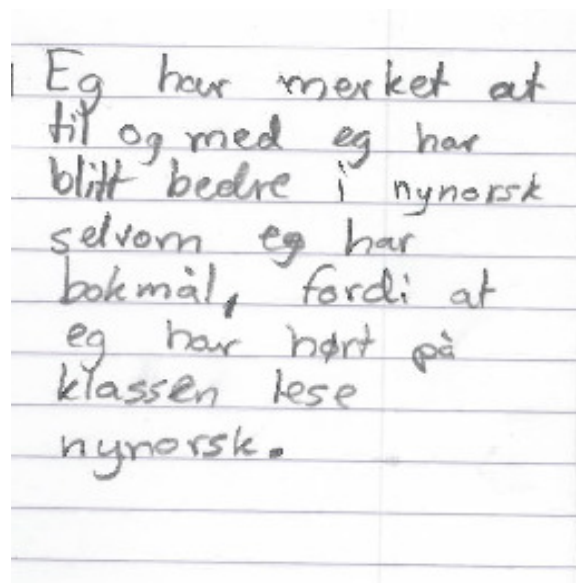 Eg har merket at
til og med eg har
blitt bedre i nynorsk
selvom eg har
bokmål, fordi at
eg har hørt på
klassen lese
nynorsk.